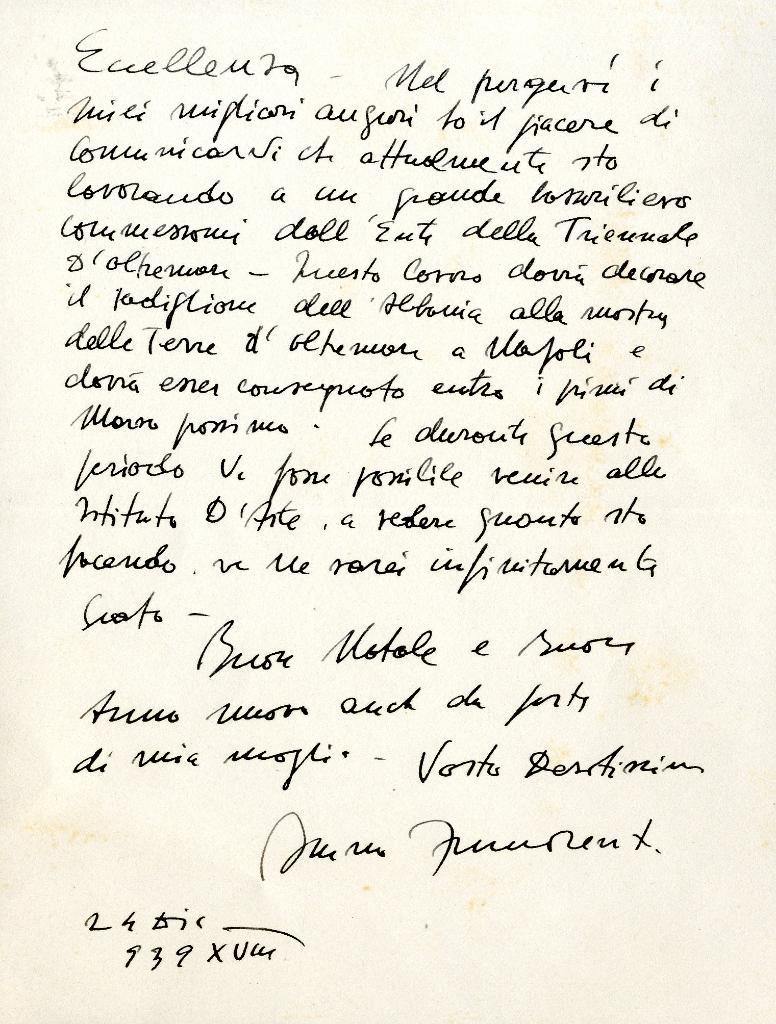 Eccellenza - Nel porgervi i
miei migliori auguri ho il piacere di
comunicarvi che attualmente sto
lavorando a un grande bassorilievo
commessomi dall'Ente della Triennale
D'oltremare - Questo lavoro dovrà decorare
il Padiglione dell'Albania alla mostra
delle Terre d'oltremare a Napoli e
dovrà esser consegnato entro i primi di
Marzo prossimo. Se durante questo
periodo Vi fosse possibile venire allo
Istituto D'Arte, a vedere quanto sto
facendo, ve ne sarei infinitamente
Grato -
Buon Natale e Buon
Anno nuovo anche da parte
di mia moglie - Vostro Devotissimo
Bruno Innocenti.
24 Dic
939 XVIII